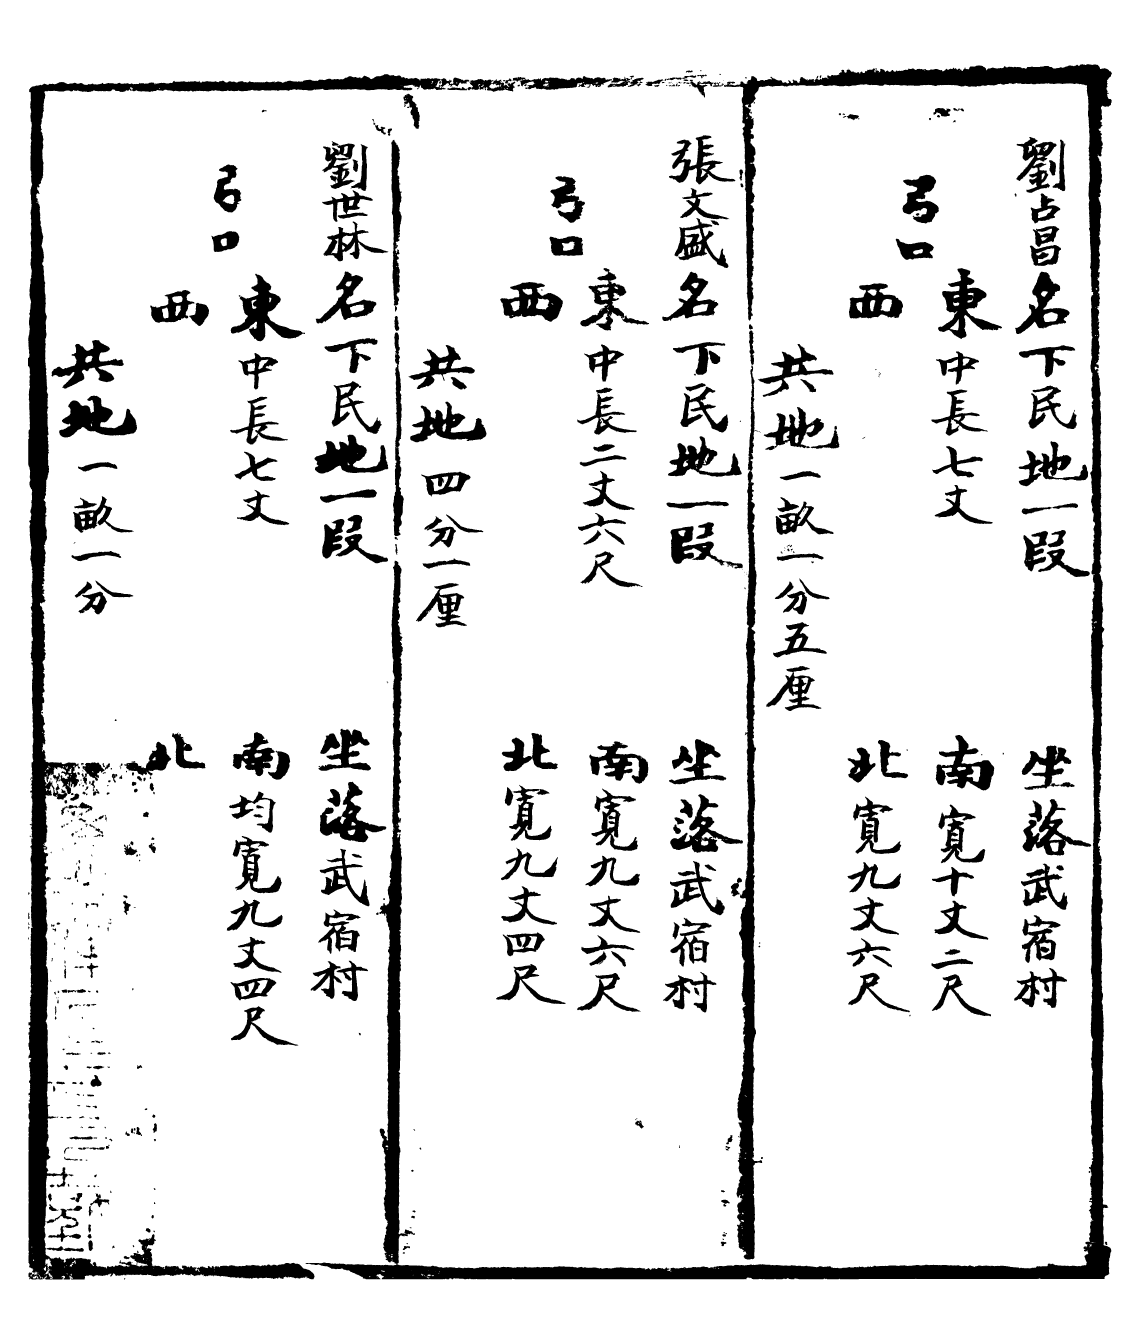 劉占昌名下民地一段　坐落武宿村
弓口　東中長七丈　南寬十丈二尺
西　北寬九丈六尺
共地一畝一分五厘
張文盛名下民地一段　坐落武宿村
弓口　東中長二丈六尺　南寬九丈六尺
西　北寬九丈四尺
共地四分一厘
劉世林名下民地一段　坐落武宿村
弓口　東中長七丈　南均寬九丈四尺
西　北
共地一畝一分